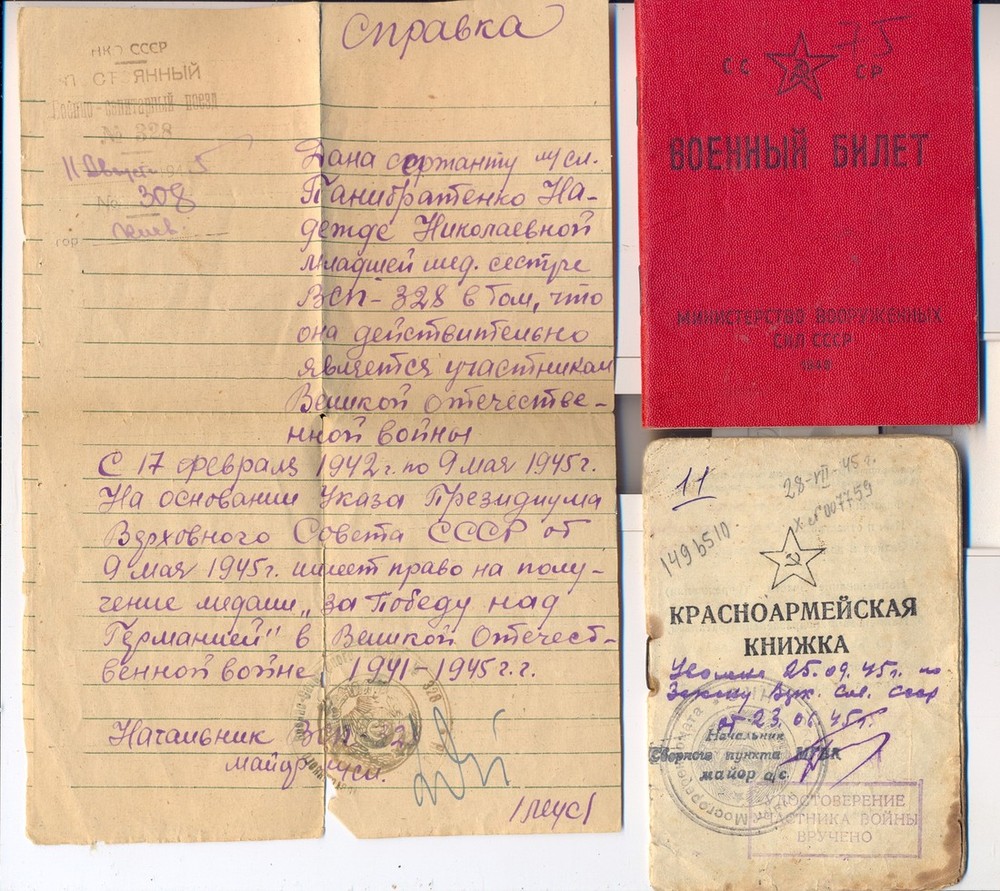 Справка
НКО СССР
ПОСТОЯННЫЙ
Военно-санитарный поезд
№ 328
11 Август 1945
№ 308
гор. Киев.
Дана сержанту м/сл.
Панибратенко На-
дежде Николаевной
младшей мед. сестре
ВСП-328 в том, что
она действительно
является участником
Великой отечестве-
нной войны
С 17 февраля 1942 г. по 9 мая 1945 г.
На основании Указа Президиума
Верховного Совета СССР от
9 мая 1945 г. имеет право на полу-
чение медали „за Победу над
Германией" в Великой Отечест-
венной войне 1941-1945 г.г.
Начальник ВСП-
майор м/сл.
СС СР
75
ВОЕННЫЙ БИЛЕТ
МИНИСТЕРСТВО ВООРУЖЕННЫХ
СИЛ СССР
11
28-VII-45 г.
№ 007759
КРАСНОАРМЕЙСКАЯ
КНИЖКА
25.09.45г. по
Закону Верх. Сов. СССР
от 23.06.45г.
Начальник
Сборного пункта МГВК
майор а/с.
УДОСТОВЕРЕНИЕ
УЧАСТНИКА ВОЙНЫ
ВРУЧЕНО